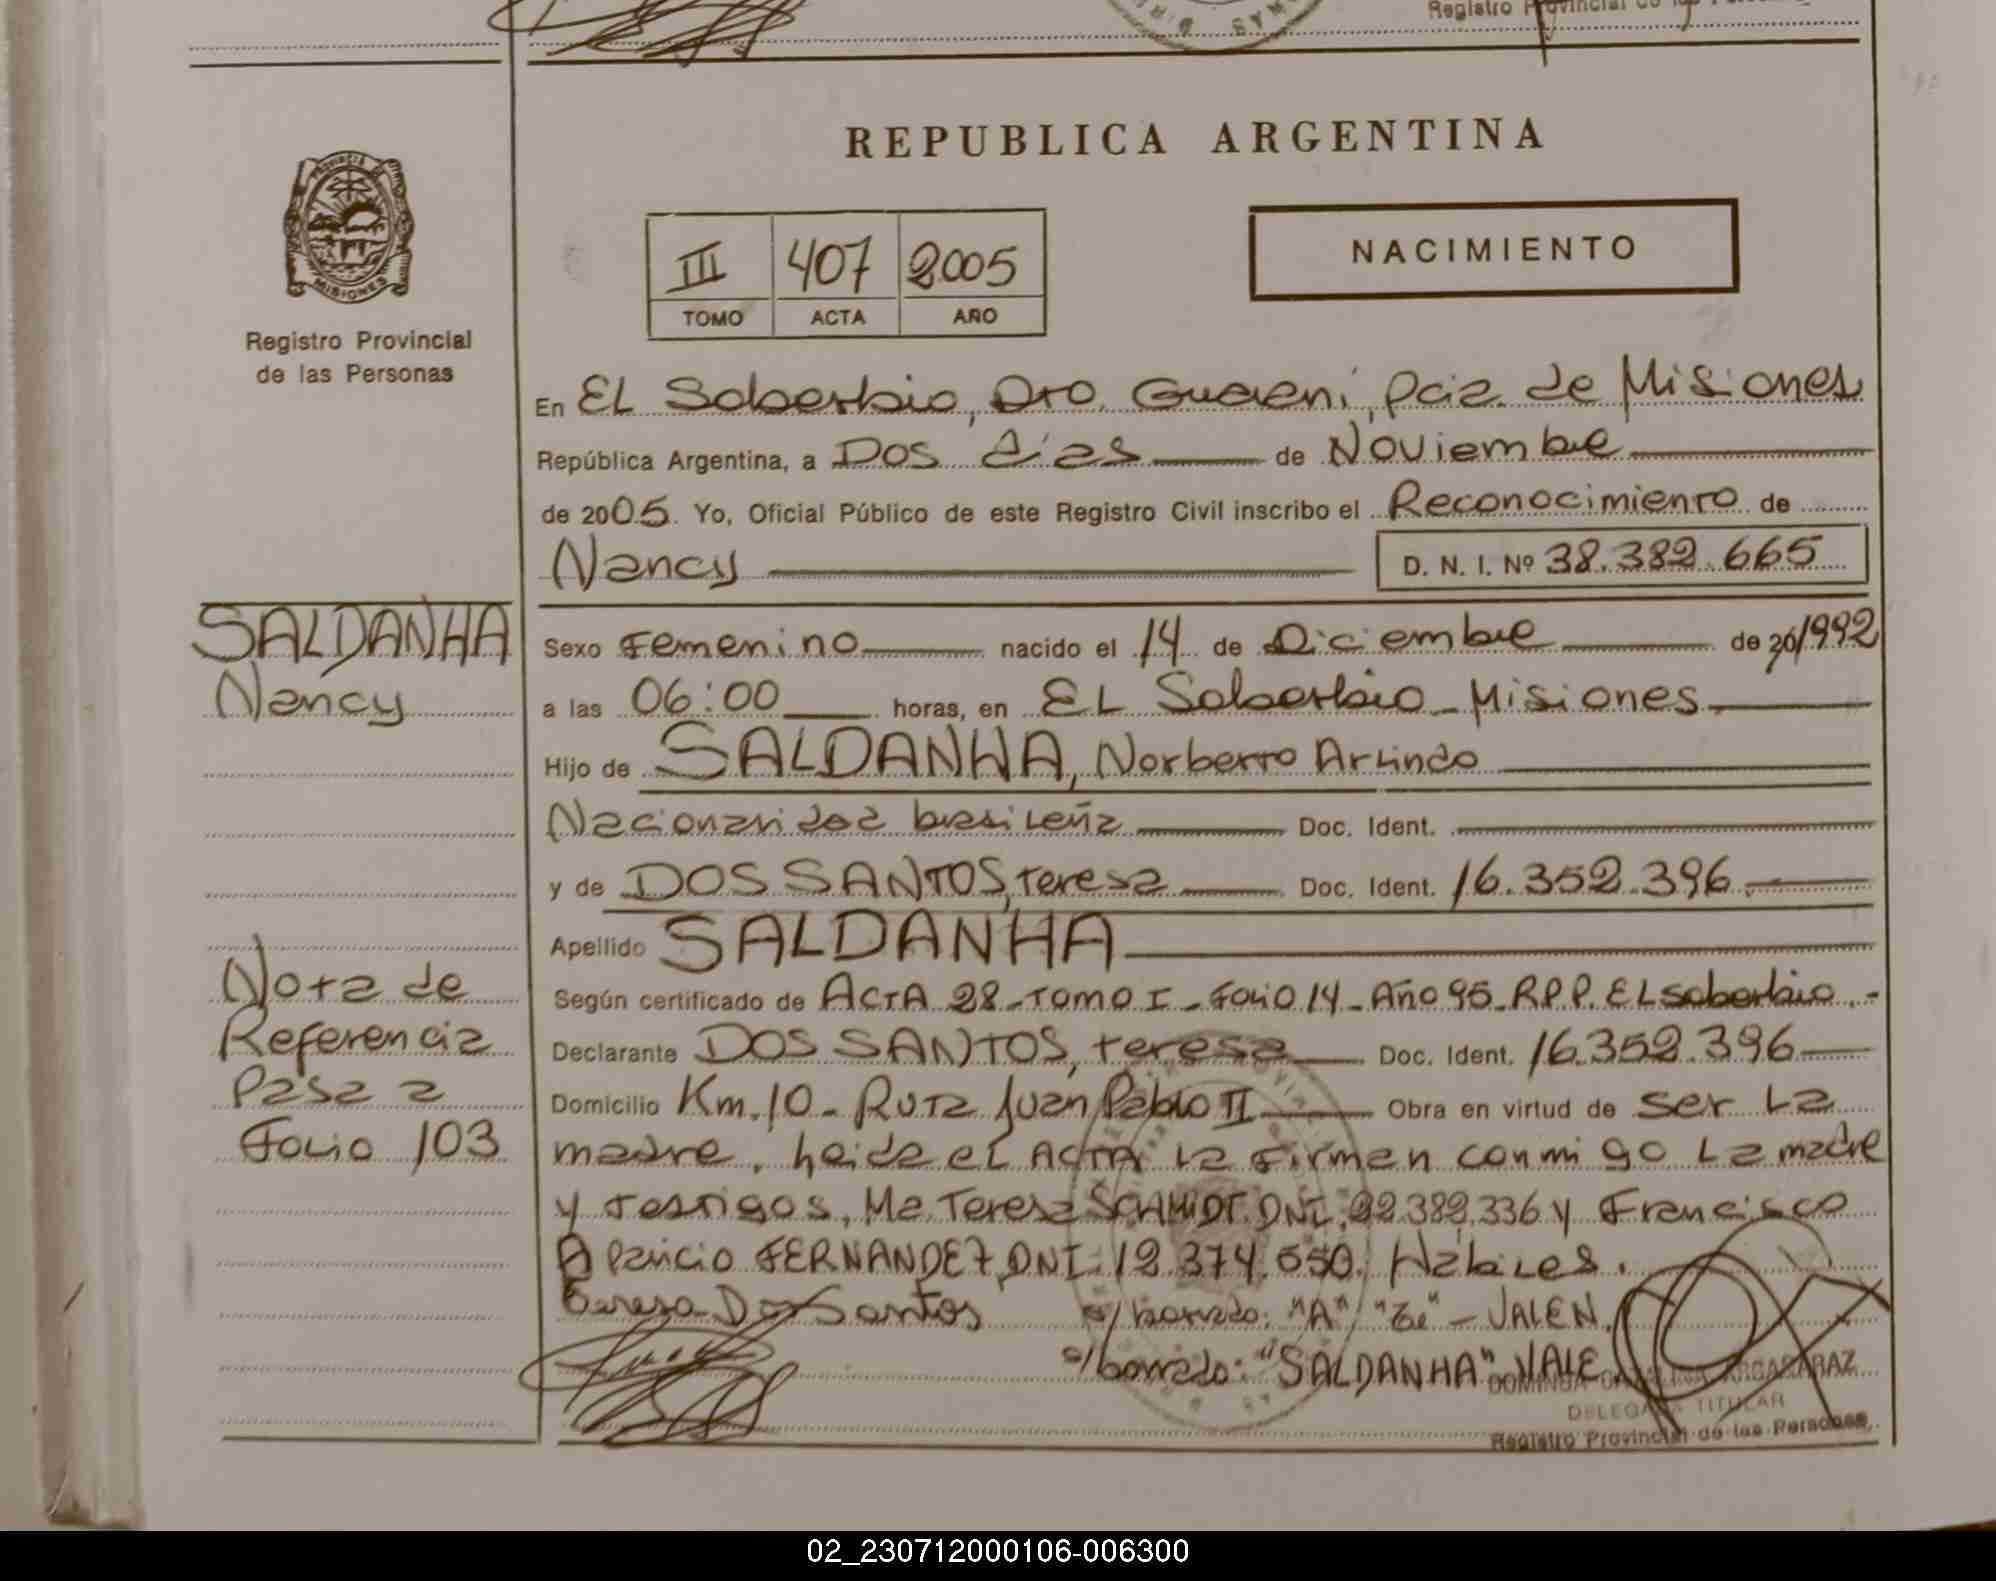 Registro Provincial de las Personas
REPUBLICA ARGENTINA
PROVINCIA
MISIONES
Registro Provincial
de las Personas
III 407 2005
TOMO ACTA AÑO
NACIMIENTO
En EL Soberbio, Dto. Guaraní, Pcia. de Misiones
República Argentina, a Dos días de Noviembre
de 2005. Yo, Oficial Público de este Registro Civil inscribo el Reconocimiento de
Nancy D. N. I. Nº 38.382.665
SALDANHA
Nancy
Sexo Femenino nacido el 14 de Diciembre de 20/1992
a las 06:00 horas, en EL Soberbio - Misiones
Hijo de SALDANHA, Norberto Arlindo
Nacionalidad brasileña Doc. Ident.
y de DOS SANTOS, Teresa Doc. Ident. 16.352.396
Apellido SALDANHA
Según certificado de ACTA 28 - TOMO I - Folio 14 - Año 95 - R.P.P. EL Soberbio.-
Declarante DOS SANTOS, Teresa Doc. Ident. 16.352.396
Domicilio Km. 10 - Ruta Juan Pablo II Obra en virtud de ser La
madre, heida el ACTA la firman conmigo La madre
y testigos, Ma Teresa SCHMIDT. DNI. 22.382.336 y Francisco
Aparicio FERNANDEZ DNI: 12.374.550. Hábiles.
Nota de
Referencia
Pasa a
Folio 103
Teresa Dos Santos s/borrado: "A" - VALEN.
s/borrado: "SALDANHA" VALE
ARGARARAZ
DELEGADA TITULAR
Registro Provincial de las Personas
02_230712000106-006300